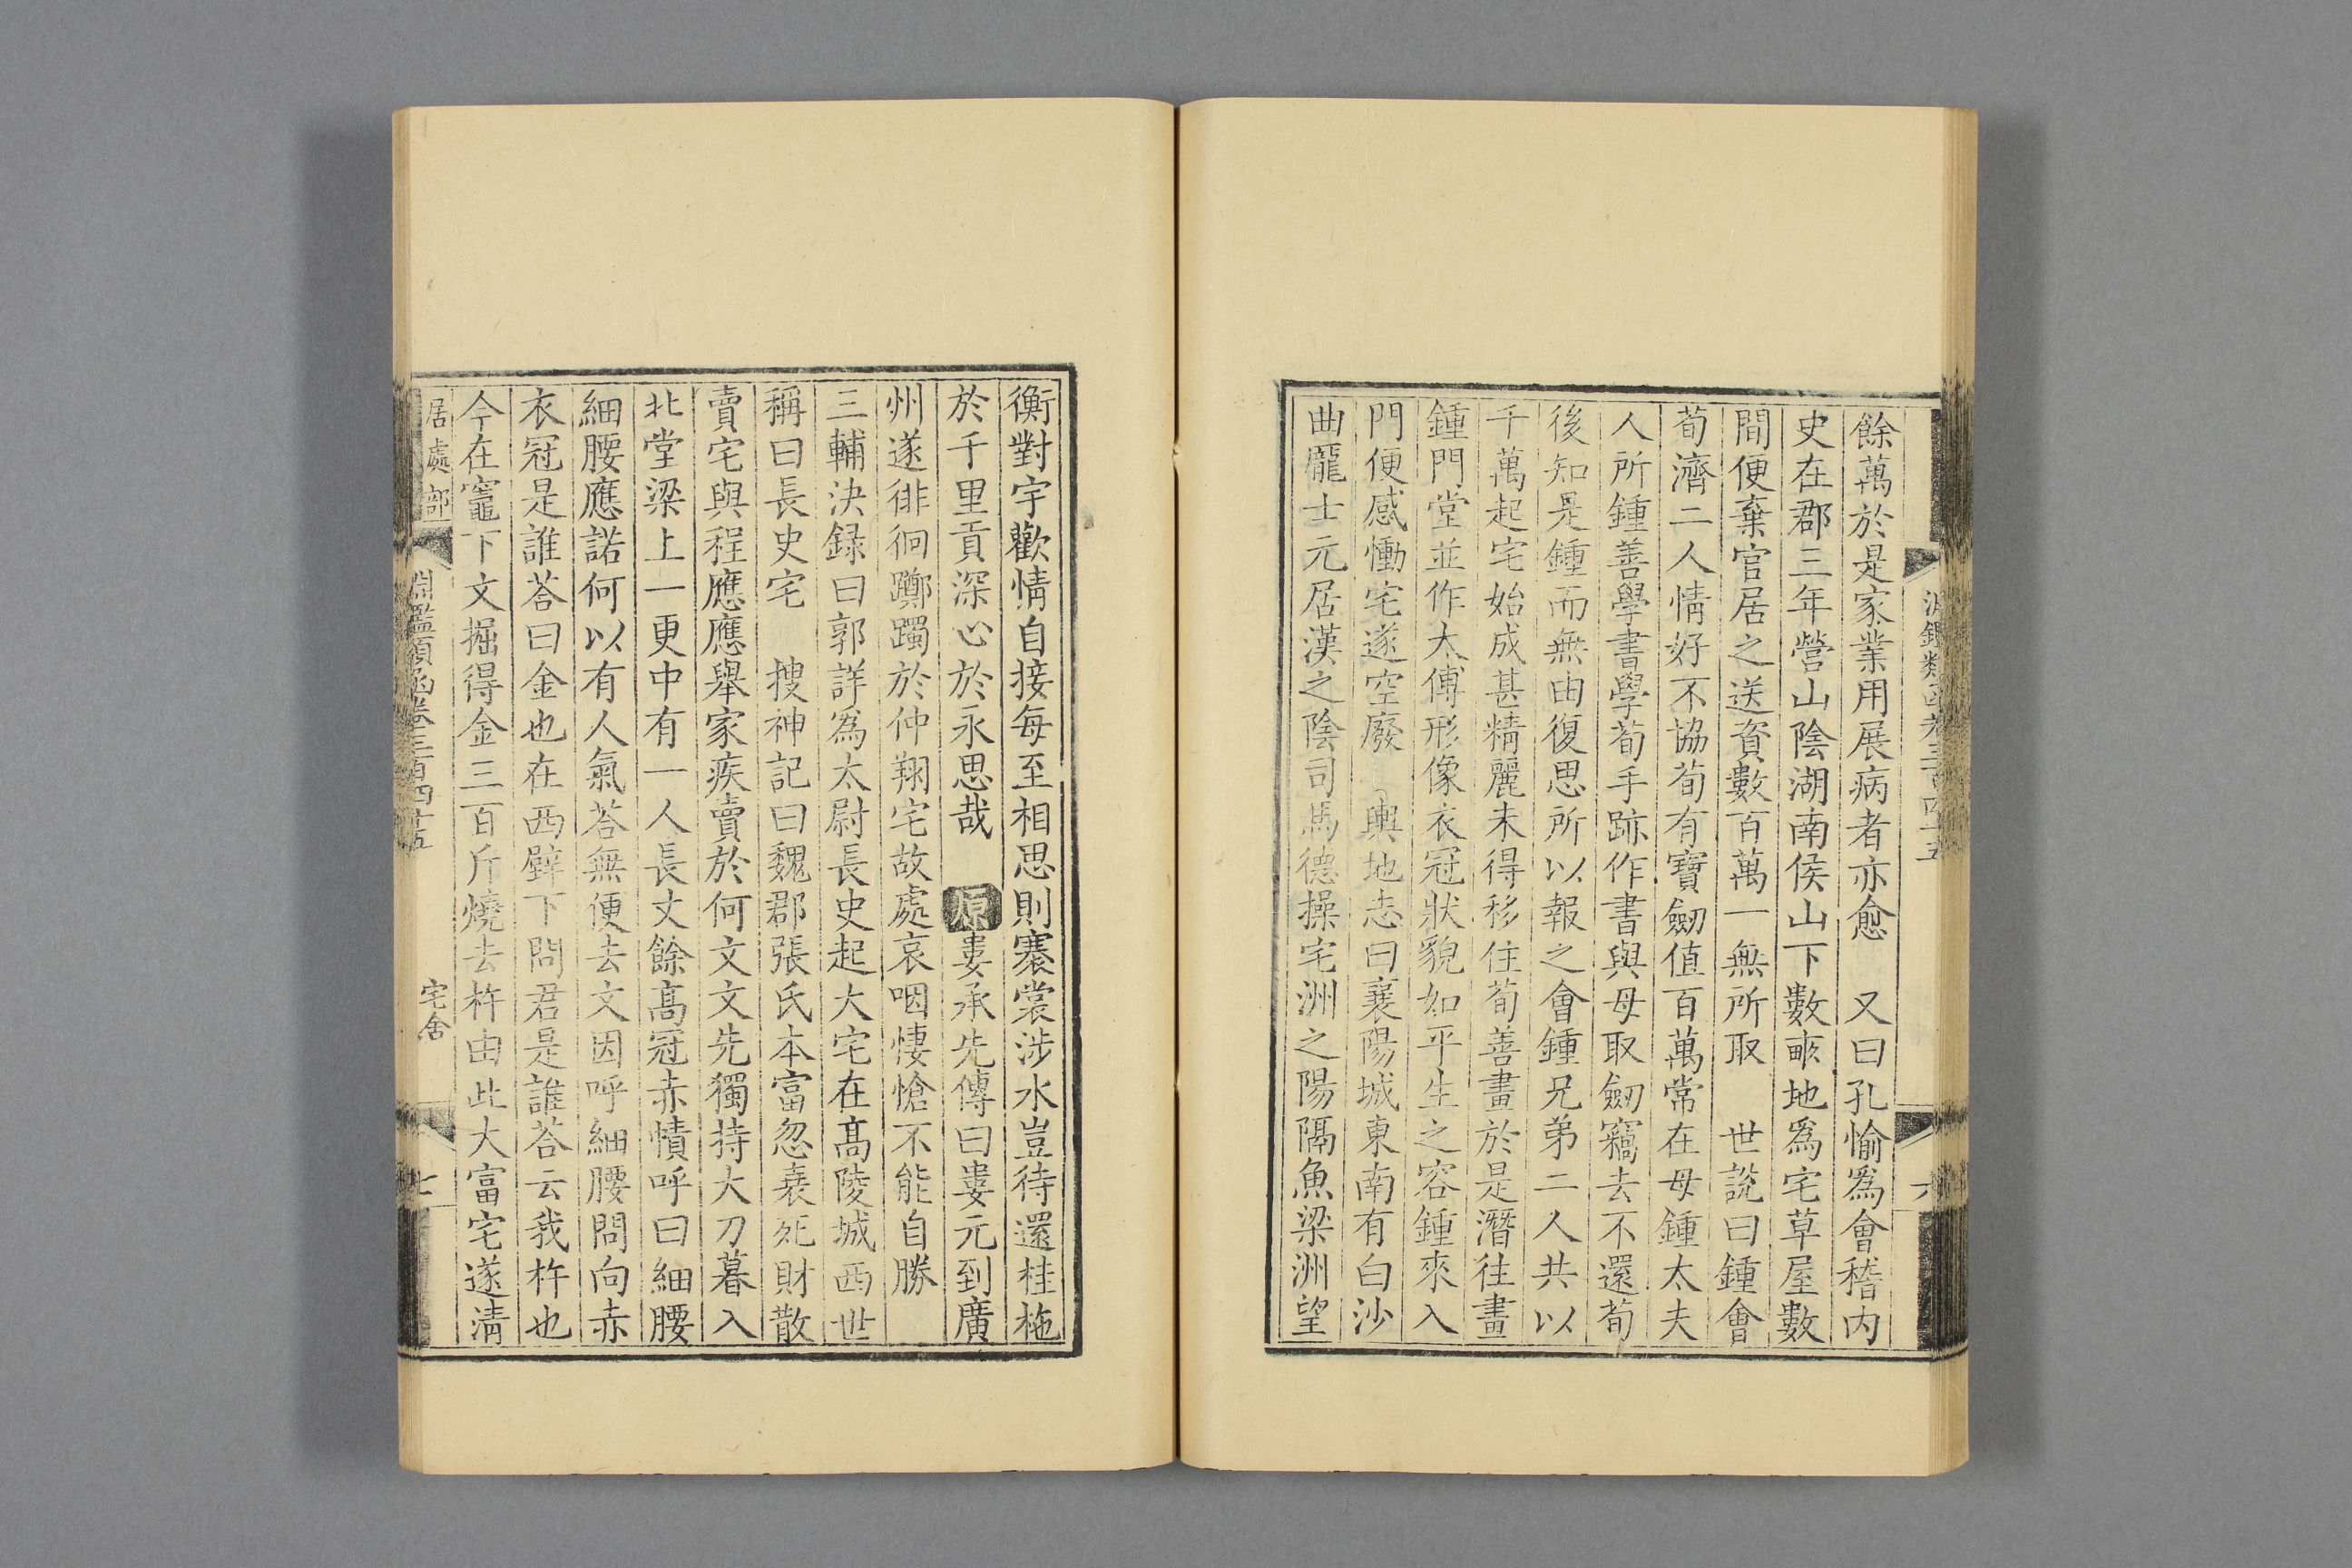 餘萬於是家業用展病者亦愈　又曰孔愉爲會稽内
史在郡三年營山陰湖南侯山下數畮地爲宅草屋數
間便棄官居之送資數百萬一無所取　世説曰鍾會
荀濟二人情好不協荀有寶劒值百萬常在母鍾太夫
人所鍾善學書學荀手跡作書與母取劒竊去不還荀
後知是鍾而無由復思所以報之會鍾兄弟二人共以
千萬起宅始成甚精麗未得移住荀善畫於是潛往畫
鍾門堂並作太傅形像衣冠狀貌如平生之容鍾來入
門便感慟宅遂空廢　輿地志曰襄陽城東南有白沙
曲龐士元居漢之陰司馬德操宅洲之陽隔魚梁洲望
衡對宇歡情自接每至相思則褰裳涉水豈待還桂柂
於千里貢深心於永思哉　原婁承先傳曰婁元到廣
州遂徘徊躑躅於仲翔宅故處哀咽悽愴不能自勝
三輔决録曰郭詳爲太尉長史起大宅在高陵城西世
稱曰長史宅　搜神記曰魏郡張氏本富忽衰死財散
賣宅與程應應舉家疾賣於何文文先獨持大刀暮入
北堂梁上一更中有一人長丈餘高冠赤幘呼曰細腰
細腰應諾何以有人氣荅無便去文因呼細腰問向赤
衣冠是誰荅曰金也在西壁下問君是誰荅云我杵也
今在竈下文掘得金三百斤燒去杵由此大富宅遂清
居處部
淵鑑類函卷三百四十五
宅舍
七